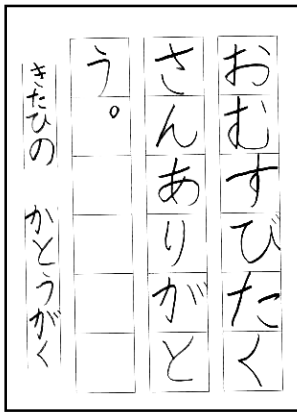 おむすびたく
さんありがと
う。
きたひの かとうがく